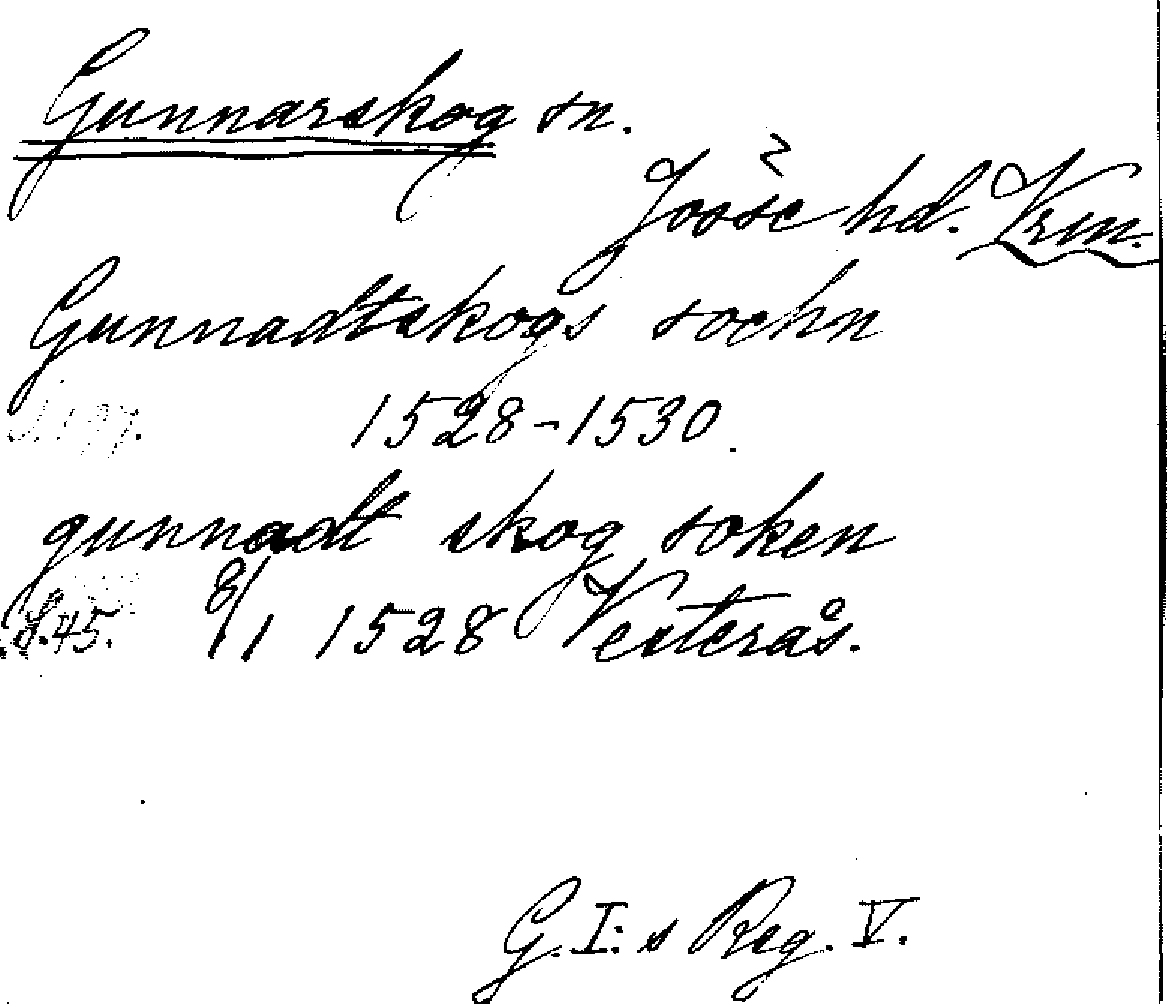 Gunnarskog sn.
Jösse hd. Vrm.
Gunnadtskogs sochn
S. 197. 1528-1530.
gunnadt skog soken
S.45. 8/1 1528 Vesterås.
G.I:s Reg. V.